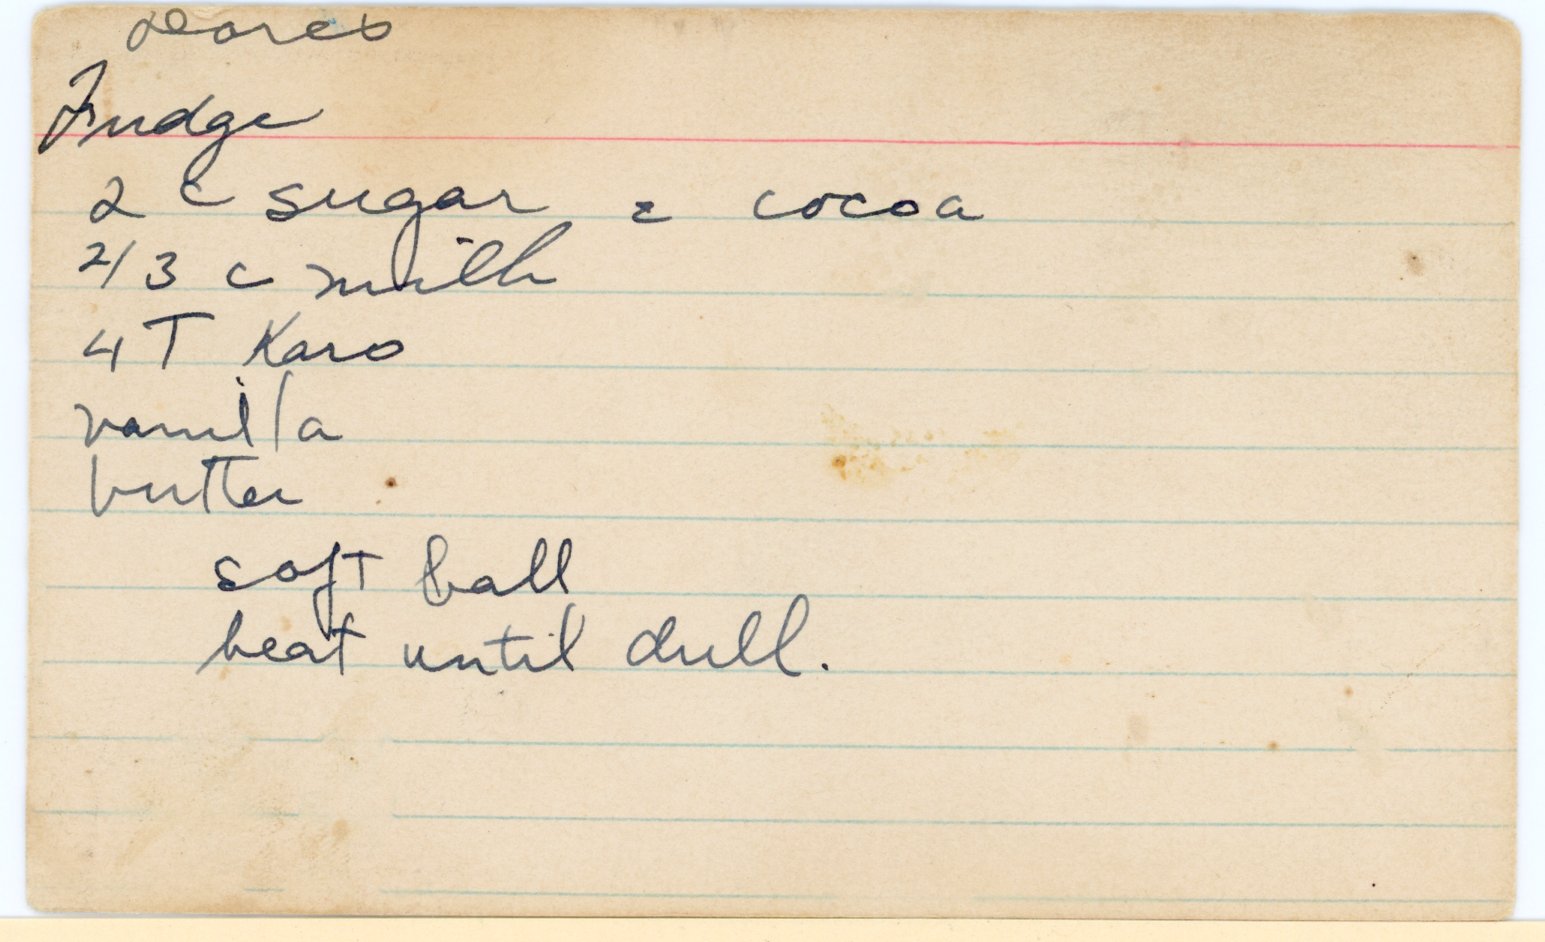 Fudge
2 c sugar c̄ cocoa
2/3 c milk
4 T Karo
vanilla
butter
soft ball
beat until dull.